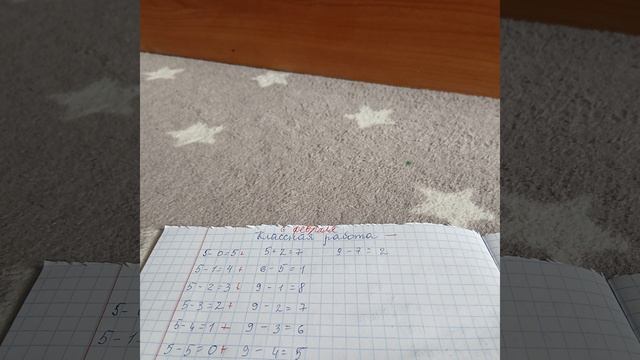 6 февраля
Классная работа
5-0=5+ 5+2=7 9-7=2
5-1=4+ 6-5=1
5-2=3+ 9-1=8
5-3=2+ 9-2=7
5-4=1+ 9-3=6
5-5=0+ 9-4=5
5-
5-1